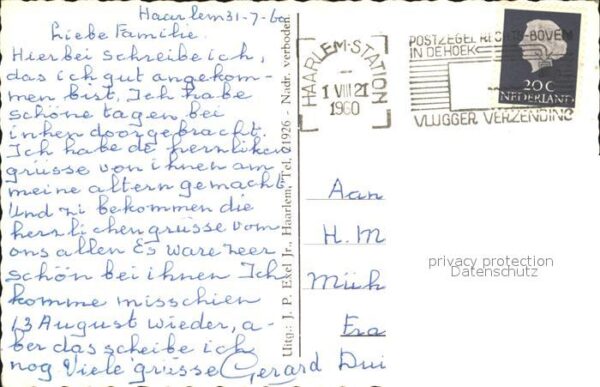 Haarlem 31-7-60
Liebe Familie.
Hierbei schreibe ich,
das ich gut angekom-
men bist. Ich habe
schöne tagen bei
inhen doorgebracht.
Ich habe de hernliken
grüsse von ihnen am
meine altern gemacht
Und zi bekommen die
herzlichen grüsse vom
ons allen Es ware zeer
schön bei ihnen Ich
komme misschien
13 August wieder, a-
ber das scheibe ich
nog Viele grüsse Gerard Dui
Uitg.: J. P. Exel Jr., Haarlem, Tel. 21926 - Nadr. verboden
HAARLEM-STATION
1 VIII 21
1960
POSTZEGEL RECHTS-BOVEN
IN DE HOEK
VLUGGER VERZENDING
20 C
NEDERLAND
Aan
H. M
Müh
Fra
privacy protection
Datenschutz